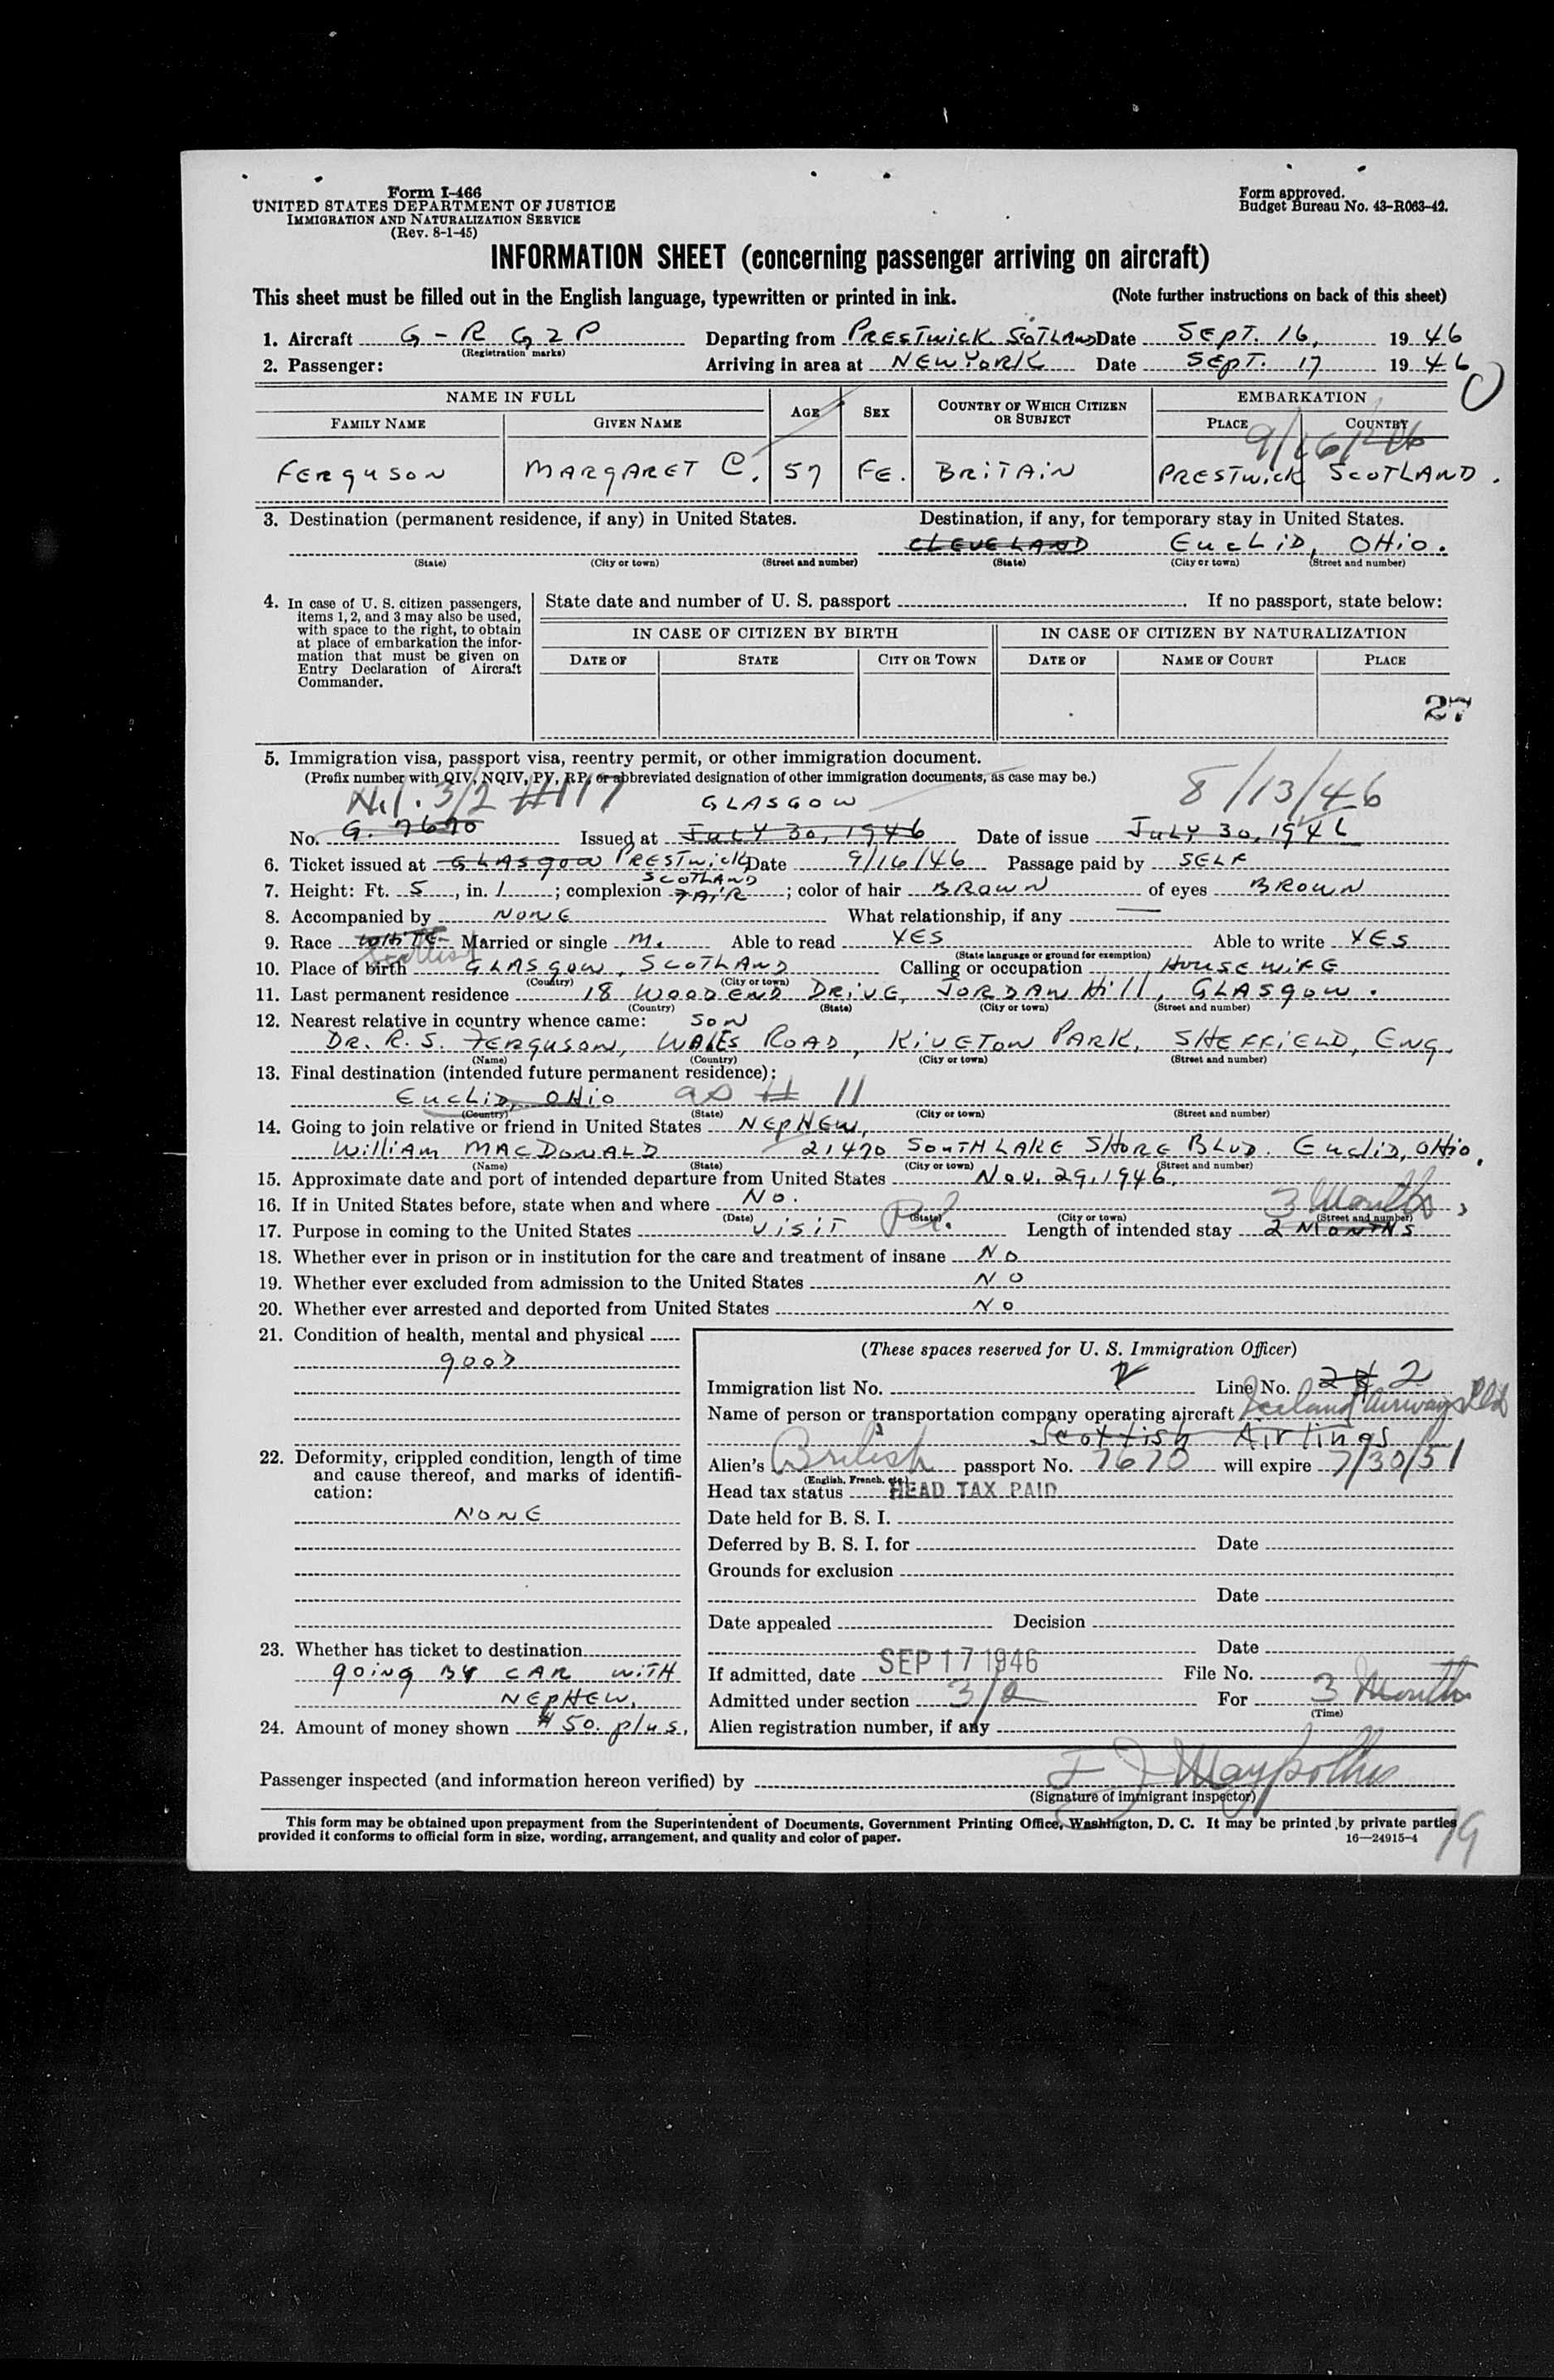 Form I-466
UNITED STATES DEPARTMENT OF JUSTICE
IMMIGRATION AND NATURALIZATION SERVICE
(Rev. 8-1-45)
Form approved.
Budget Bureau No. 43-R063-42.
INFORMATION SHEET (concerning passenger arriving on aircraft)
This sheet must be filled out in the English language, typewritten or printed in ink. (Note further instructions on back of this sheet)
1. Aircraft G-R G2P Departing from PRESTWICK SOTLAND Date SEPT. 16, 1946
(Registration marks)
2. Passenger: Arriving in area at NEW YORK Date SEPT. 17 1946
NAME IN FULL AGE SEX COUNTRY OF WHICH CITIZEN OR SUBJECT EMBARKATION
FAMILY NAME GIVEN NAME PLACE COUNTRY
9/16/46
FERGUSON MARGARET C. 57 FE. BRITAIN PRESTWICK SCOTLAND.
3. Destination (permanent residence, if any) in United States. Destination, if any, for temporary stay in United States.
CLEVELAND EUCLID, OHIO.
(State) (City or town) (Street and number) (State) (City or town) (Street and number)
4. In case of U. S. citizen passengers, items 1, 2, and 3 may also be used, with space to the right, to obtain at place of embarkation the information that must be given on Entry Declaration of Aircraft Commander.
State date and number of U. S. passport If no passport, state below:
IN CASE OF CITIZEN BY BIRTH IN CASE OF CITIZEN BY NATURALIZATION
DATE OF STATE CITY OR TOWN DATE OF NAME OF COURT PLACE
27
5. Immigration visa, passport visa, reentry permit, or other immigration document.
(Prefix number with QIV, NQIV, PV, RP, or abbreviated designation of other immigration documents, as case may be.)
3/2 #117 GLASGOW 8/13/46
No. G. 7670 Issued at JULY 30, 1946 Date of issue JULY 30, 1946
6. Ticket issued at GLASGOW PRESTWICK Date 9/16/46 Passage paid by SELF
SCOTLAND
7. Height: Ft. 5, in. 1; complexion FAIR; color of hair BROWN of eyes BROWN
8. Accompanied by NONE What relationship, if any —
9. Race WHITE Married or single M. Able to read YES Able to write YES
(State language or ground for exemption)
10. Place of birth GLASGOW, SCOTLAND Calling or occupation HOUSEWIFE
(Country) (City or town)
11. Last permanent residence 18 WOODEND DRIVE, JORDAN HILL, GLASGOW.
(Country) (State) (City or town) (Street and number)
12. Nearest relative in country whence came: SON
DR. R. S. FERGUSON, WALES ROAD, KIVETON PARK, SHEFFIELD, ENG.
(Name) (Country) (City or town) (Street and number)
13. Final destination (intended future permanent residence):
EUCLID, OHIO as # 11
(Country) (State) (City or town) (Street and number)
14. Going to join relative or friend in United States NEPHEW,
WILLIAM MACDONALD 21470 SOUTH LAKE SHORE BLVD. EUCLID, OHIO.
(Name) (State) (City or town) (Street and number)
15. Approximate date and port of intended departure from United States NOV. 29, 1946.
16. If in United States before, state when and where NO. 3 Months
(Date) (State) (City or town) (Street and number)
17. Purpose in coming to the United States VISIT Pl. Length of intended stay 2 MONTHS
18. Whether ever in prison or in institution for the care and treatment of insane NO
19. Whether ever excluded from admission to the United States NO
20. Whether ever arrested and deported from United States NO
21. Condition of health, mental and physical
GOOD
22. Deformity, crippled condition, length of time and cause thereof, and marks of identification:
NONE
23. Whether has ticket to destination
GOING BY CAR WITH
NEPHEW.
24. Amount of money shown $50. plus.
(These spaces reserved for U. S. Immigration Officer)
Immigration list No. Line No. 2
Name of person or transportation company operating aircraft Iceland Airways Ltd
Scottish Airlines
Alien's British passport No. 7670 will expire 7/30/51
(English, French, etc.)
Head tax status HEAD TAX PAID
Date held for B. S. I.
Deferred by B. S. I. for Date
Grounds for exclusion
Date
Date appealed Decision
Date
If admitted, date SEP 17 1946 File No.
Admitted under section 3/2 For 3 Months
(Time)
Alien registration number, if any
Passenger inspected (and information hereon verified) by
(Signature of immigrant inspector)
This form may be obtained upon prepayment from the Superintendent of Documents, Government Printing Office, Washington, D. C. It may be printed by private parties
provided it conforms to official form in size, wording, arrangement, and quality and color of paper. 16—24915-4
19